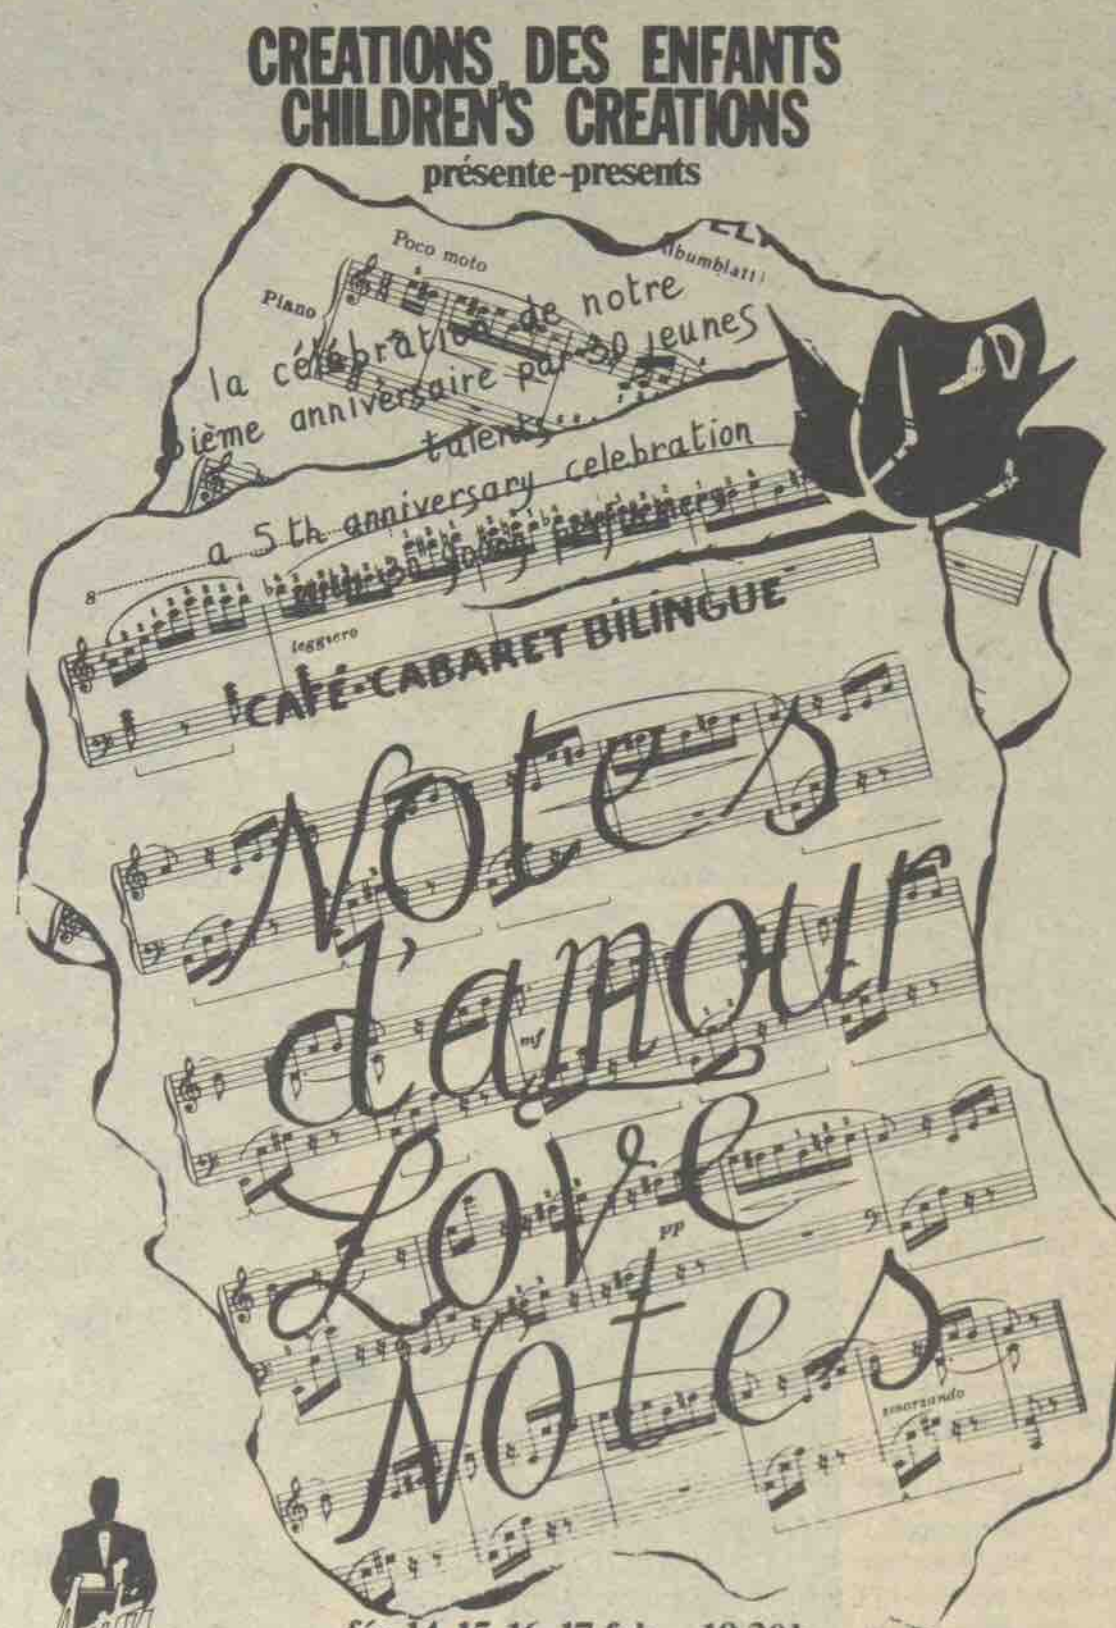 CREATIONS DES ENFANTS
CHILDREN'S CREATIONS
présente-presents
Poco moto
Piano
la célébration de notre
ième anniversaire par 30 jeunes
talents...
a 5th anniversary celebration
with 30 young performers
8
leggiero
CAFÉ-CABARET BILINGUE
Notes
d'amour
mf
Love
pp
Notes
smorzando